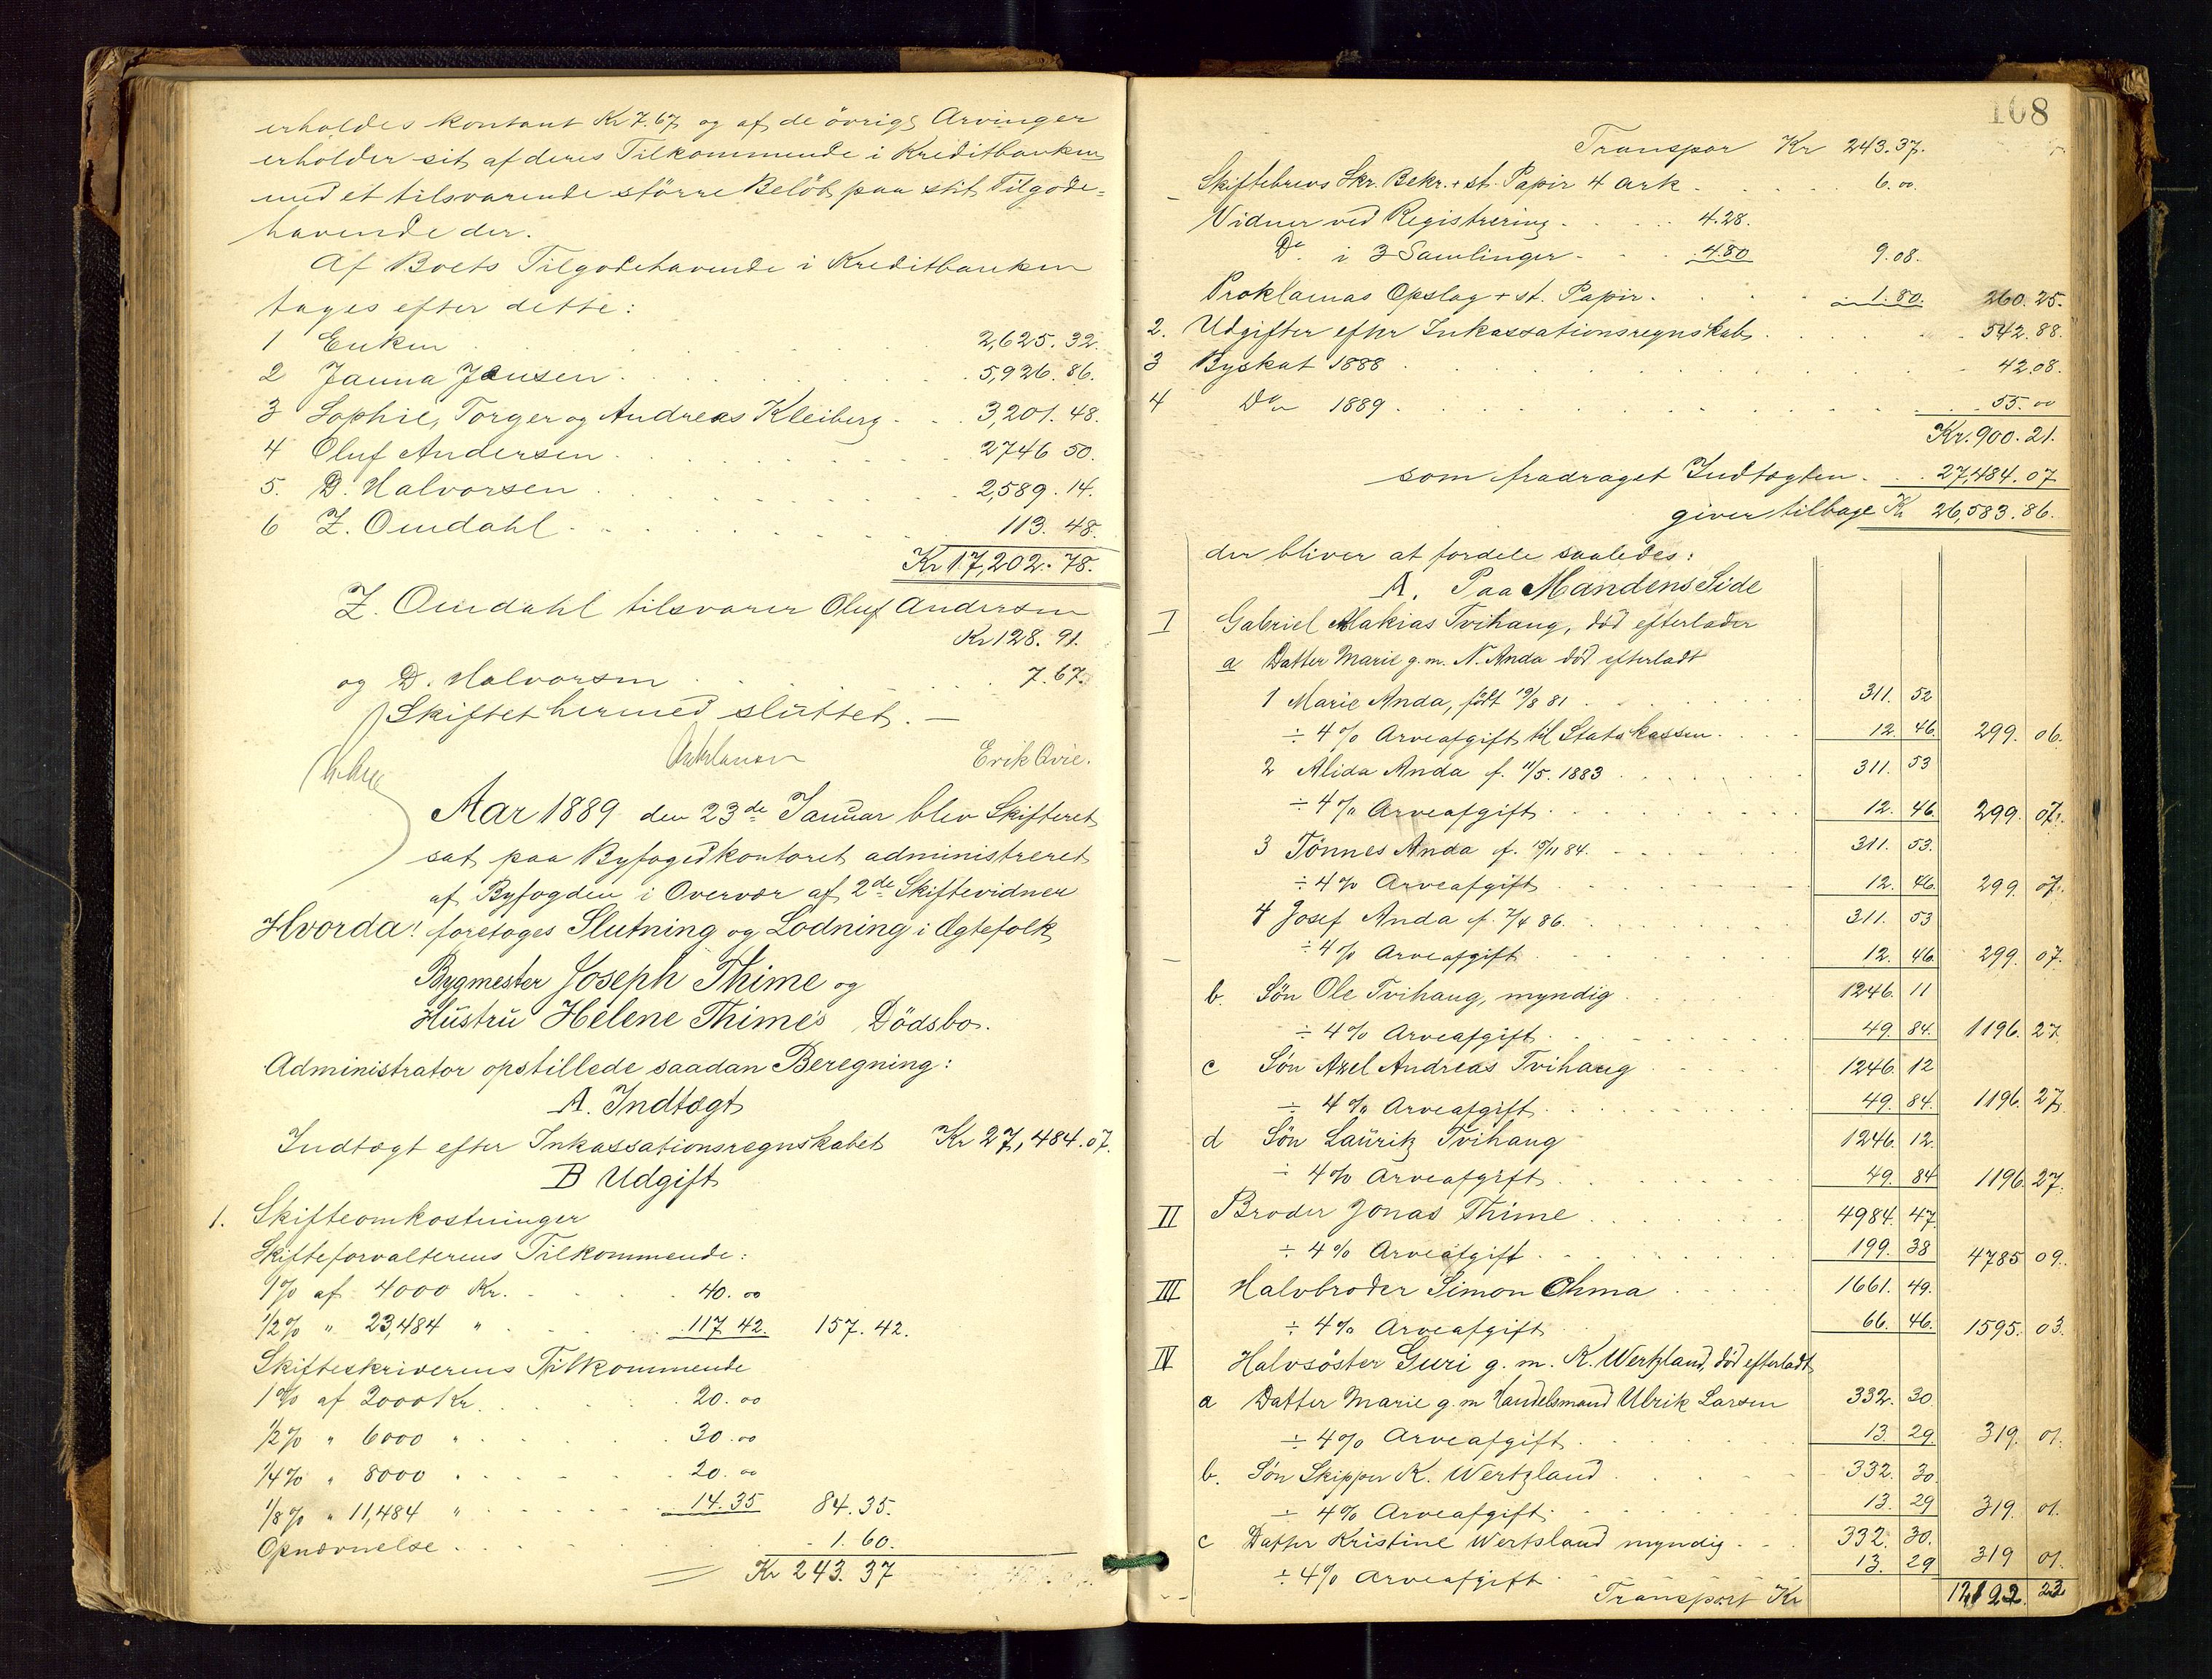 erholdes kontant Kr 7.67 og af de övrige Arvinger
erholder sit af deres Tilkommende i Kreditbanken
med et tilsvarende större Belöb paa sit Tilgode-
havende der.
Af Boets Tilgodehavende i Kreditbanken
tages efter dette:
1 Enken 2,625.32.
2 Janna Jensen 5,926.86.
3 Sophie, Torger og Andreas Kleiberg 3,201.48.
4 Oluf Andersen 2746 50.
5. D. Halvorsen 2,589.14.
6 Z. Omdahl 113.48.
Kr 17,202.78.
Z. Omdahl tilsvarer Oluf Andersen
Kr 128.91.
og D. Halvorsen 7.67.
Skiftet hermed sluttet. —
Erik Qvie.
Aar 1889 den 23de Januar blev Skifteret
sat paa Byfogedkontoret administreret
af Byfogden i Overvær af 2de Skiftevidner
Hvorda! foretoges Slutning og Lodning i Ægtefolk
Bygmester Joseph Thime og
Hustru Helene Thime's Dödsbo.
Administrator opstillede saadan Beregning:
A. Indtægt
Indtægt efter Inkassationsregnskabet Kr 27,484.07.
B Udgift
1. Skifteomkostninger
Skifteforvalterens Tilkommende:
1% af 4000 Kr. 40.00
1/2% " 23,484 " 117 42. 157.42.
Skifteskriverens Tilkommende
1% af 2000 Kr. 20.00
1/2% " 6000 " 30.00
1/4% " 8000 " 20.00
1/8% " 11,484 " 14.35 84.35.
Opnævnelse 1.60.
Kr 243.37
108
Transpor Kr 243.37.
Skiftebrevs Skr. Bekr. + st. Papir 4 ark 6.00.
Vidner ved Registrering 4.28.
Do i 3 Samlinger 4.80 9.08.
Proklamas Opslag + st. Papir 1.80. 260.25.
2. Udgifter efter Inkassationsregnskab 542.88.
3 Byskat 1888 42.08.
4 Do 1889 55.00
Kr. 900.21.
som fradraget Indtægten 27,484.07
giver tilbage Kr 26,583.86.
der bliver at fordele saaledes:
A. Paa Mandens Side
I Gabriel Malakias Tvihaug, död efterlader
a Datter Marie g.m. N. Anda död efterladt
1 Marie Anda, födt 19/8 81 311. 52
÷ 4% Arveafgift til Statskassen 12. 46. 299. 06.
2 Alida Anda f. 11/5. 1883 311. 53
÷ 4% Arveafgift 12. 46. 299. 07.
3 Tönnes Anda f. 15/11 84. 311. 53.
÷ 4% Arveafgift 12. 46. 299. 07.
4 Josef Anda f. 7/4 86. 311. 53
÷ 4% Arveafgift 12. 46 299. 07.
b. Sön Ole Tvihaug, myndig 1246. 11
÷ 4% Arveafgift 49. 84. 1196. 27
c Sön Axel Andreas Tvihaug 1246. 12
÷ 4% Arveafgift 49. 84. 1196. 27.
d Sön Lauritz Tvihaug 1246. 12.
÷ 4% Arveafgift 49. 84 1196. 27.
II Broder Jonas Thime 4984. 47
÷ 4% Arveafgift 199. 38 4785 09.
III Halvbroder Simon Ohma 1661. 49.
÷ 4% Arveafgift 66. 46. 1595. 03.
IV Halvsöster Guri g.m. K. Wertzland, död efterladt
a Datter Marie g.m Handelsmand Ulrik Larsen 332. 30
÷ 4% Arveafgift 13. 29. 319. 01.
b. Sön Skipper K. Wertzland 332. 30
÷ 4% Arveafgift 13. 29 319. 01.
c Datter Kristine Wertzland myndig 332. 30.
÷ 4% Arveafgift 13. 29 319 01.
Transport Kr 12,122. 23